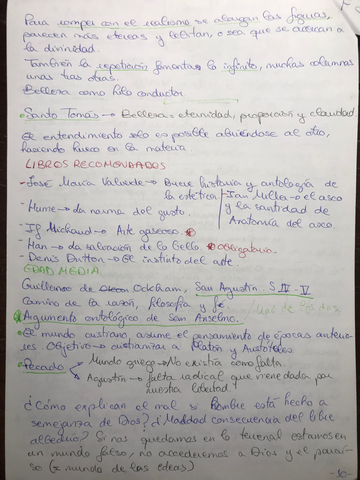 Para romper con el realismo se alargan las figuras,
parecen más etéreas y levitan, o sea que se acercan a
la divinidad.
También la repetición fomenta lo infinito, muchas columnas
unas tras otras.
Belleza como hilo conductor.
Santo Tomás → Belleza: eternidad, proporción y claridad
El entendimiento solo es posible abriéndose al otro,
haciendo hueco en la materia
LIBROS RECOMENDADOS
- José María Valverde → Breve historia y antología de
la estética
- Ian Miller → el asco
y la santidad de
Anatomía del asco
- Hume → La norma del gusto.
- If Michaud → Arte gaseoso.
- Han → La salvación de lo bello obligatorio.
- Denis Dutton → El instinto del arte.
EDAD MEDIA
Guillermo de Ockham, San Agustín S. IV - V
Camino de la razón, filosofía y fe
Argumento ontológico de San Anselmo.
El mundo cristiano asume el pensamiento de épocas anterio-
res. Objetivo → cristianizar a Platón y Aristóteles.
Pecado
Mundo griego → No existía como falta.
Agustín → falta radical que viene dada por
nuestra libertad
¿Cómo explican el mal si hombre está hecho a
semejanza de Dios? ¿Maldad consecuencia del libre
albedrío? Si nos quedamos en lo terrenal estamos en
un mundo falso, no accederemos a Dios y el paraí-
so (el mundo de las ideas)
- 10 -